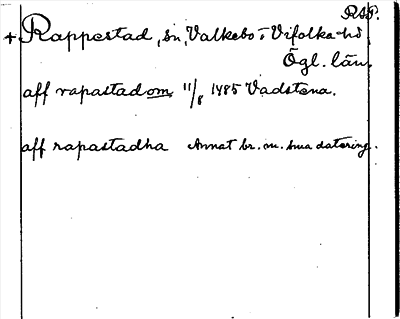 RAP.
+ Rappestad, sn, Valkebo o Vifolka hd,
Ögl. län.
aff rapastadom 11/8 1485 Vadstena.
aff rapastadha Annat br. m. sma datering.